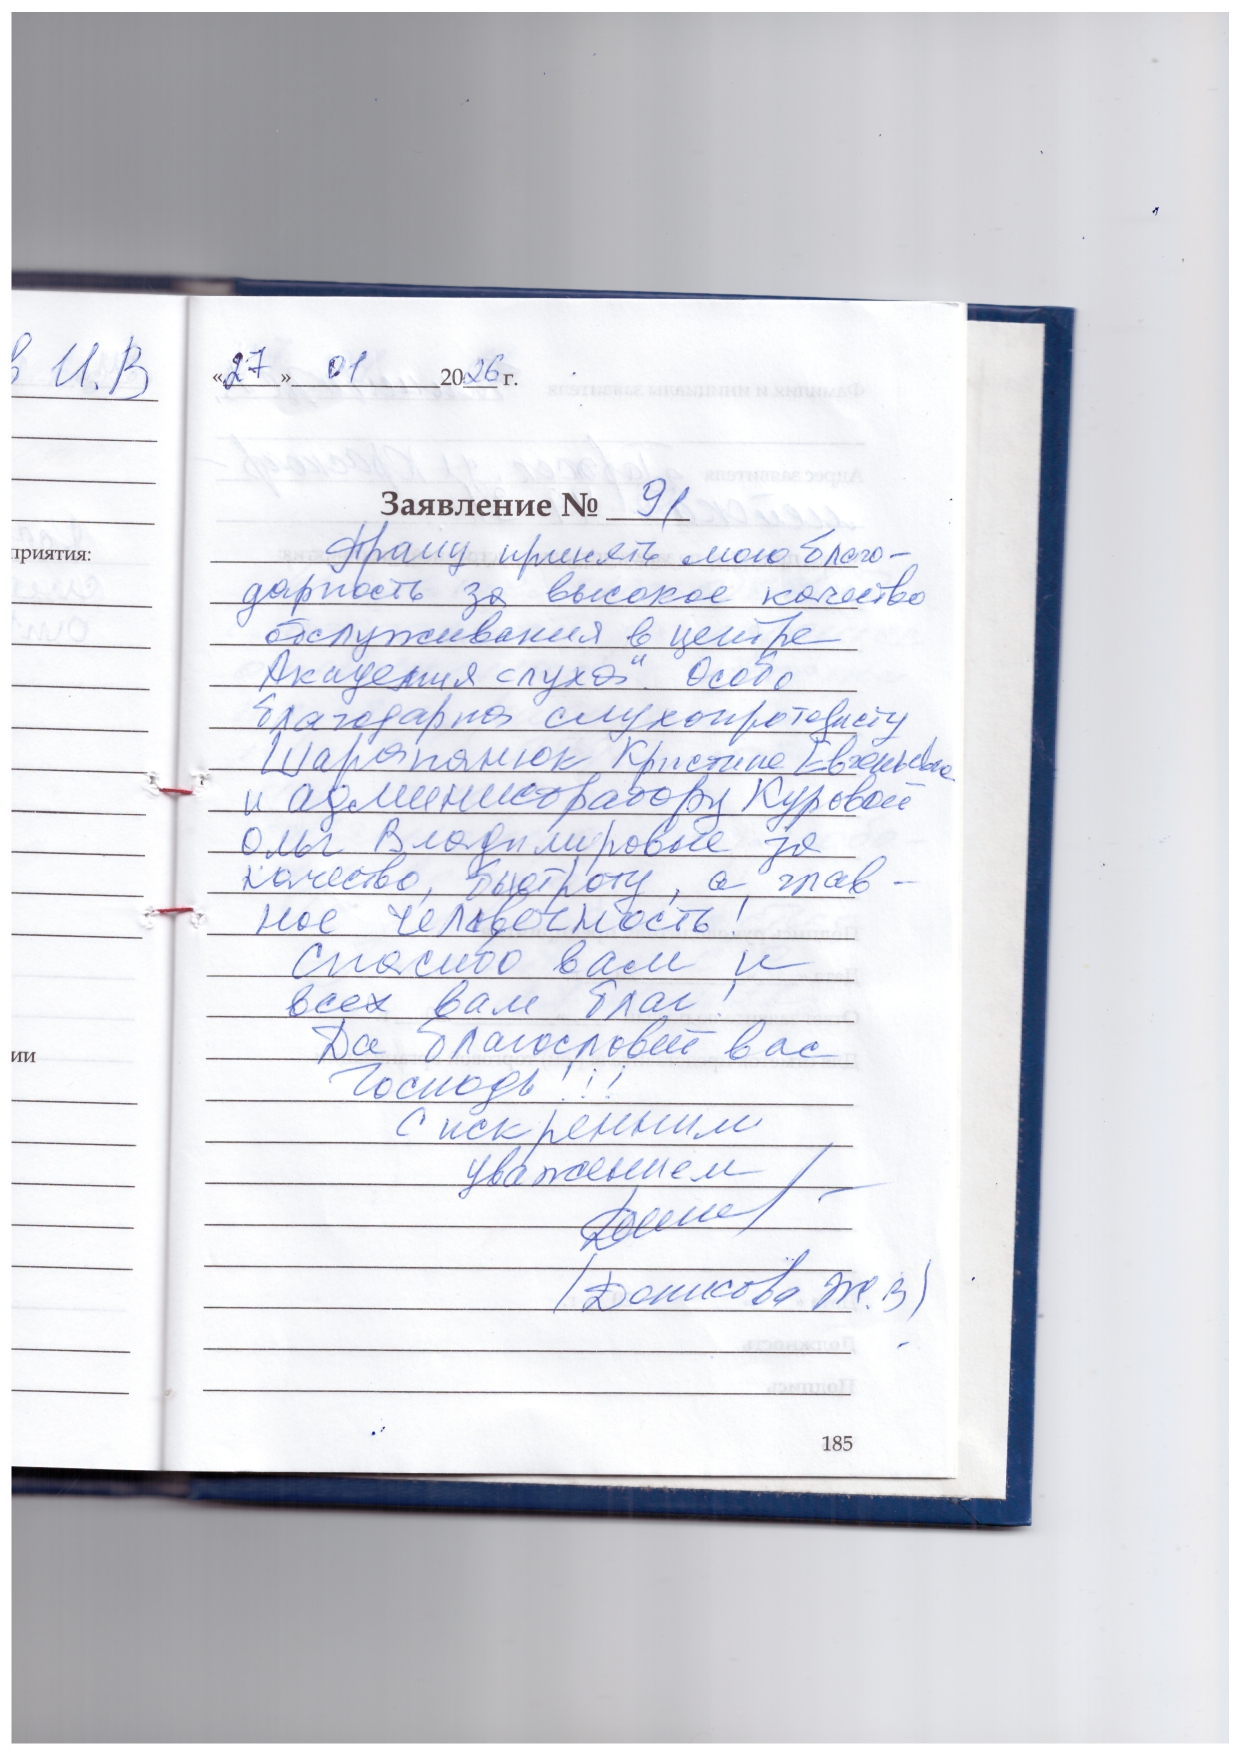 в И.В
приятия:
ии
«27» 01 2026 г.
Заявление № 91
Прошу принять мою благо-
дарность за высокое качество
обслуживания в центре
Академия слуха". Особо
благодарна слухопротезисту
Шарапанюк Кристине Евгеньевне
и администратору Куровой
Ольге Владимировне за
качество, быстроту, а глав-
ное человечность!
Спасибо вам и
всех вам благ!
Да благословит вас
Господь!!!
С искренним
уважением
(Донисова Ж.В)
185